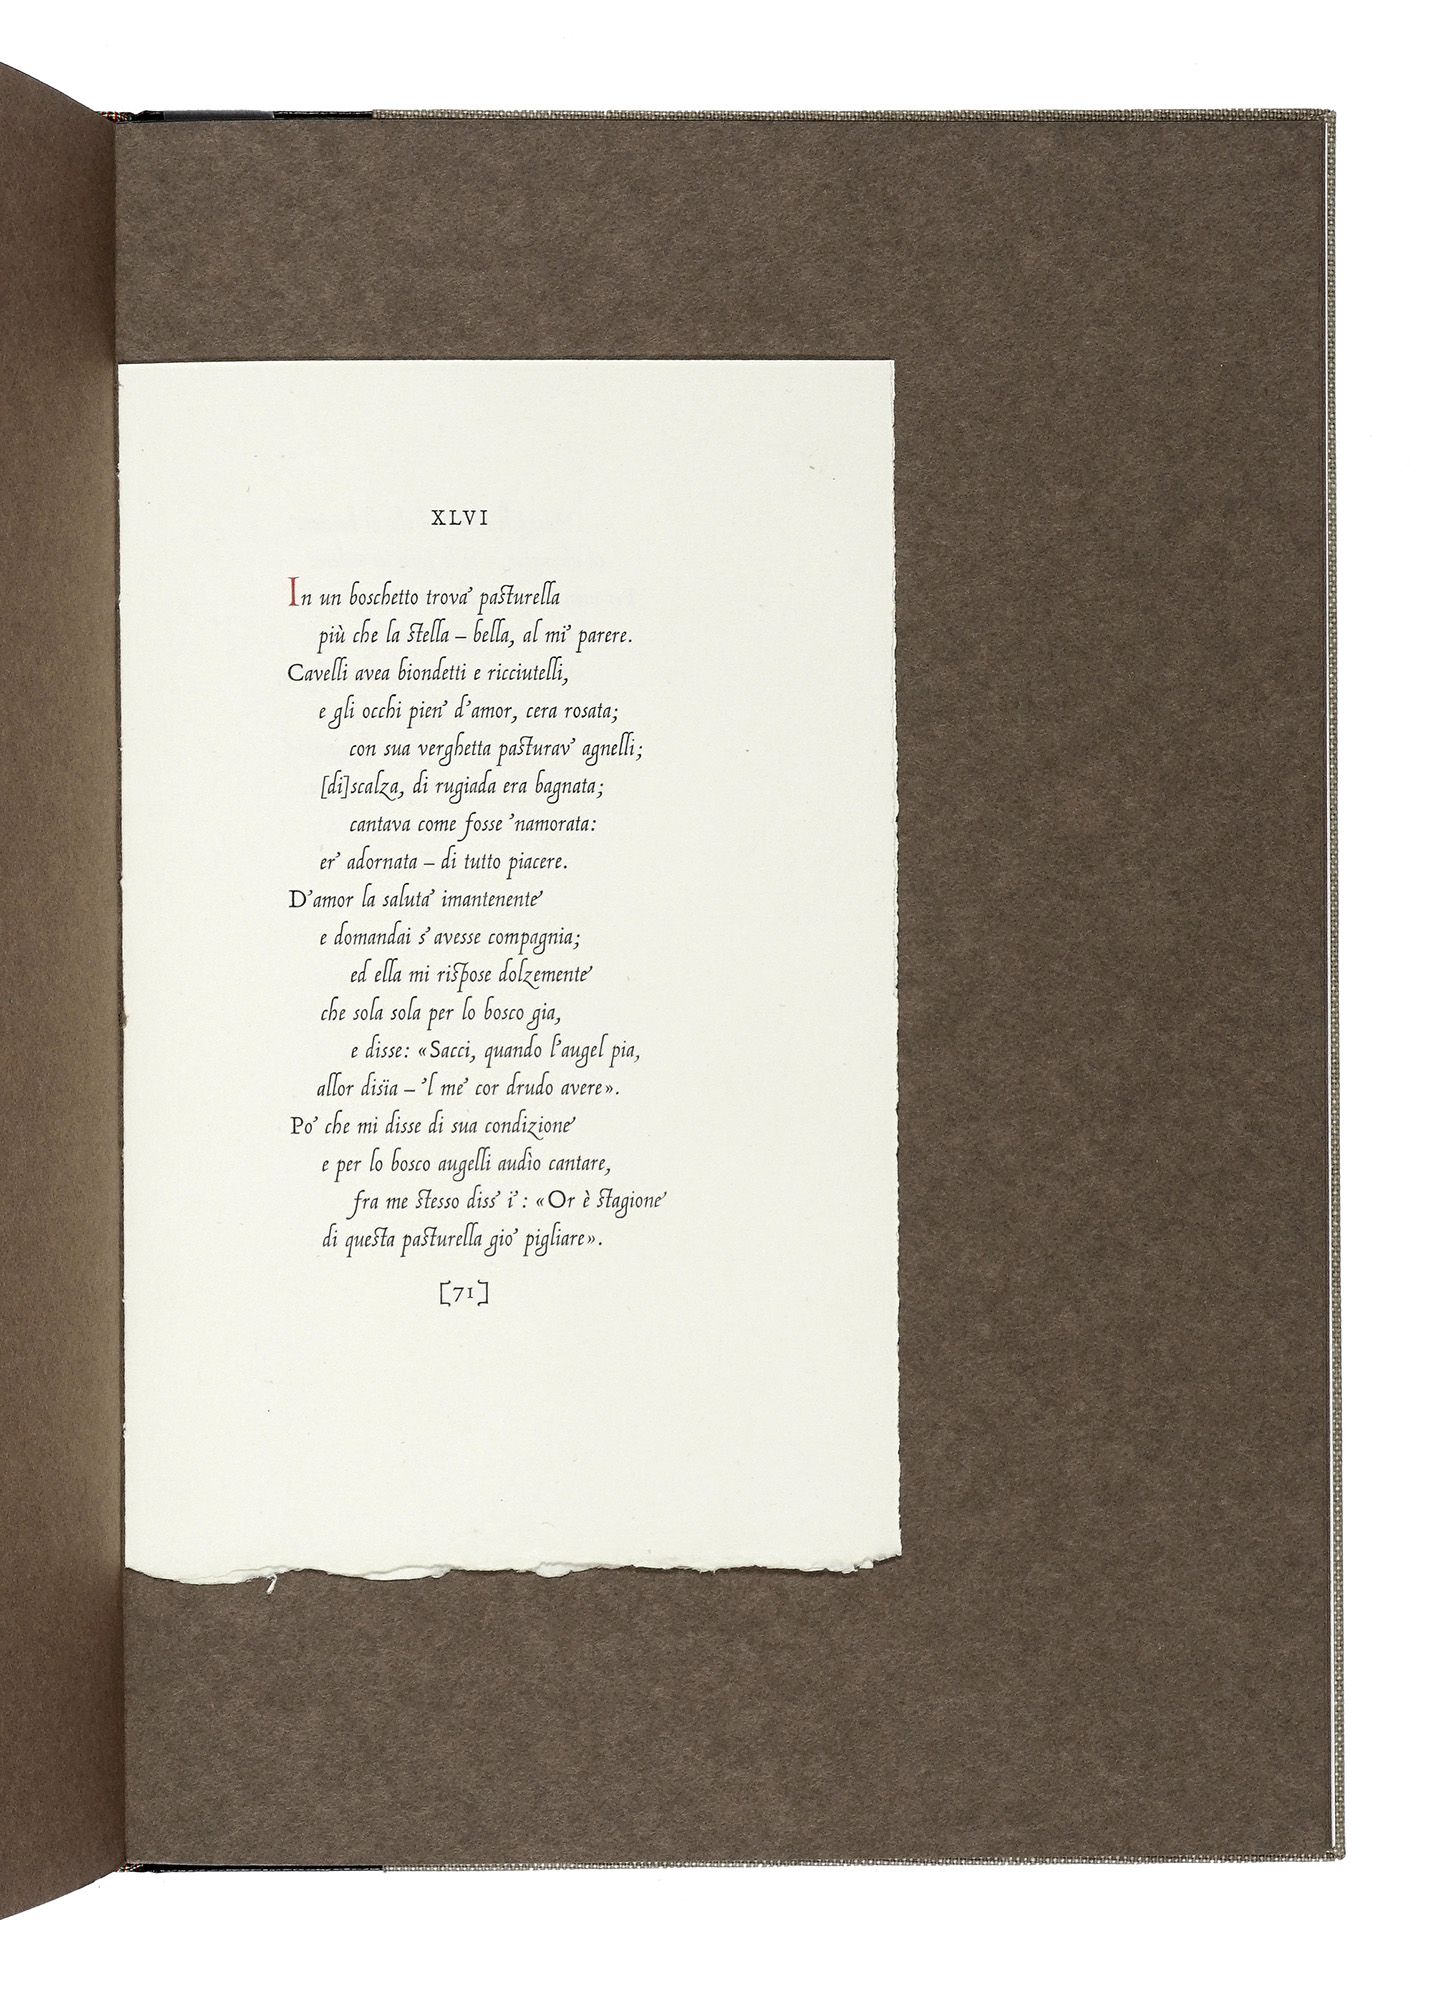 XLVI
In un boschetto trova’ pasturella
più che la stella – bella, al mi’ parere.
Cavelli avea biondetti e ricciutelli,
e gli occhi pien’ d’amor, cera rosata;
con sua verghetta pasturav’ agnelli;
[di]scalza, di rugiada era bagnata;
cantava come fosse ’namorata:
er’ adornata – di tutto piacere.
D’amor la saluta’ imantenente
e domandai s’avesse compagnia;
ed ella mi rispose dolzemente
che sola sola per lo bosco gia,
e disse: «Sacci, quando l’augel pia,
allor disïa – ’l me’ cor drudo avere».
Po’ che mi disse di sua condizione
e per lo bosco augelli audìo cantare,
fra me stesso diss’ i’: «Or è stagione
di questa pasturella gio’ pigliare».
[71]